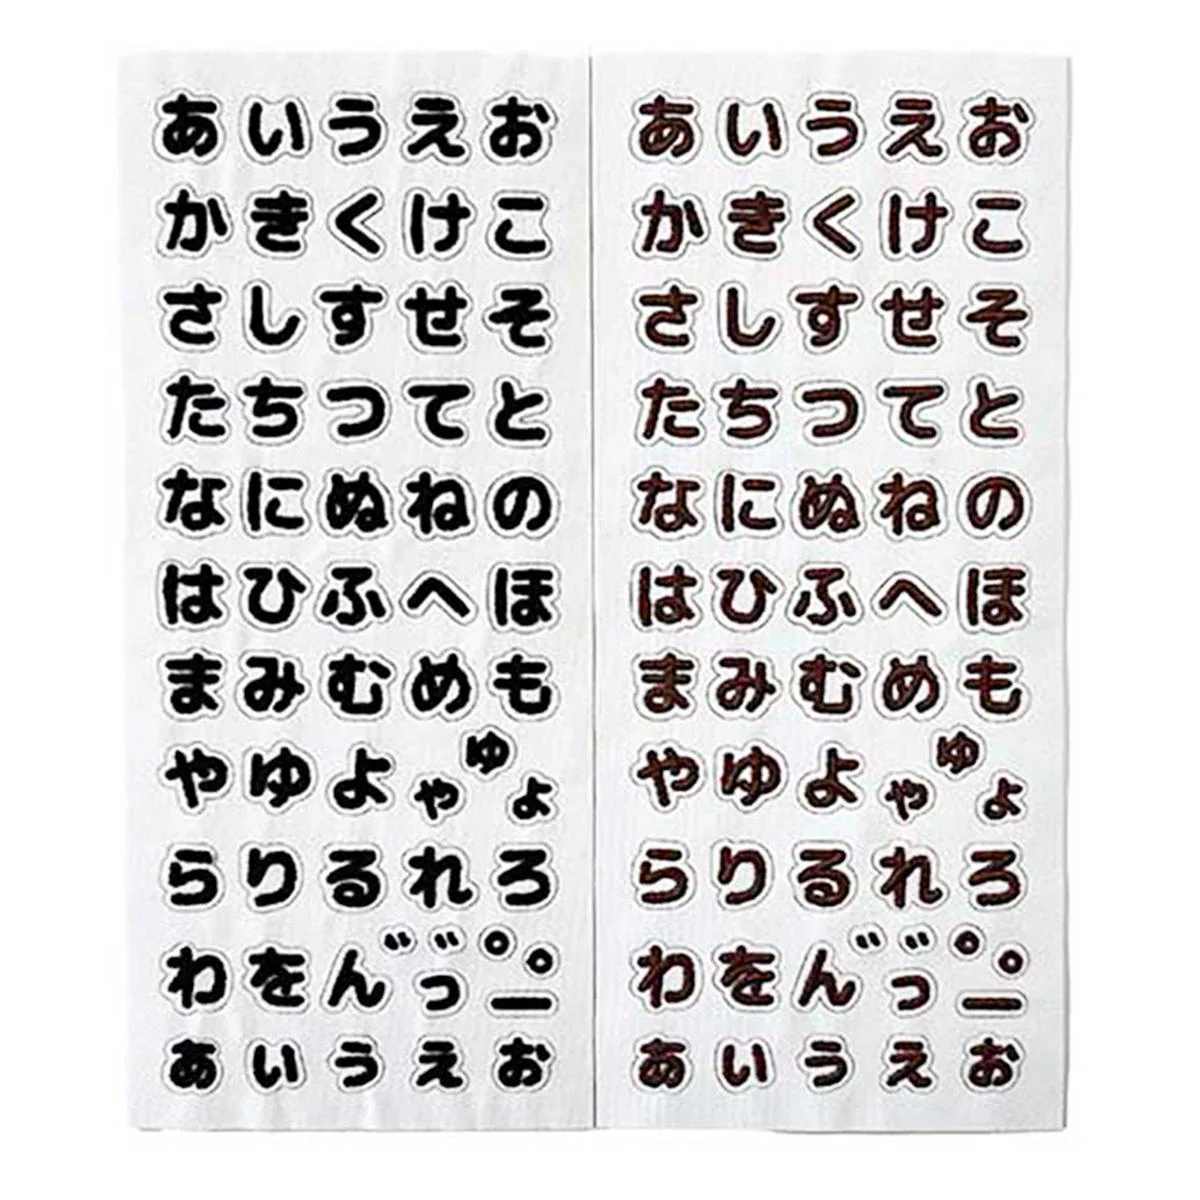 あいうえお
かきくけこ
さしすせそ
たちつてと
なにぬねの
はひふへほ
まみむめも
やゆよゃゅょ
らりるれろ
わをん゛゛っ゜゜ー
ぁぃぅぇぉ
あいうえお
かきくけこ
さしすせそ
たちつてと
なにぬねの
はひふへほ
まみむめも
やゆよゃゅょ
らりるれろ
わをん゛゛っ゜゜ー
ぁぃぅぇぉ